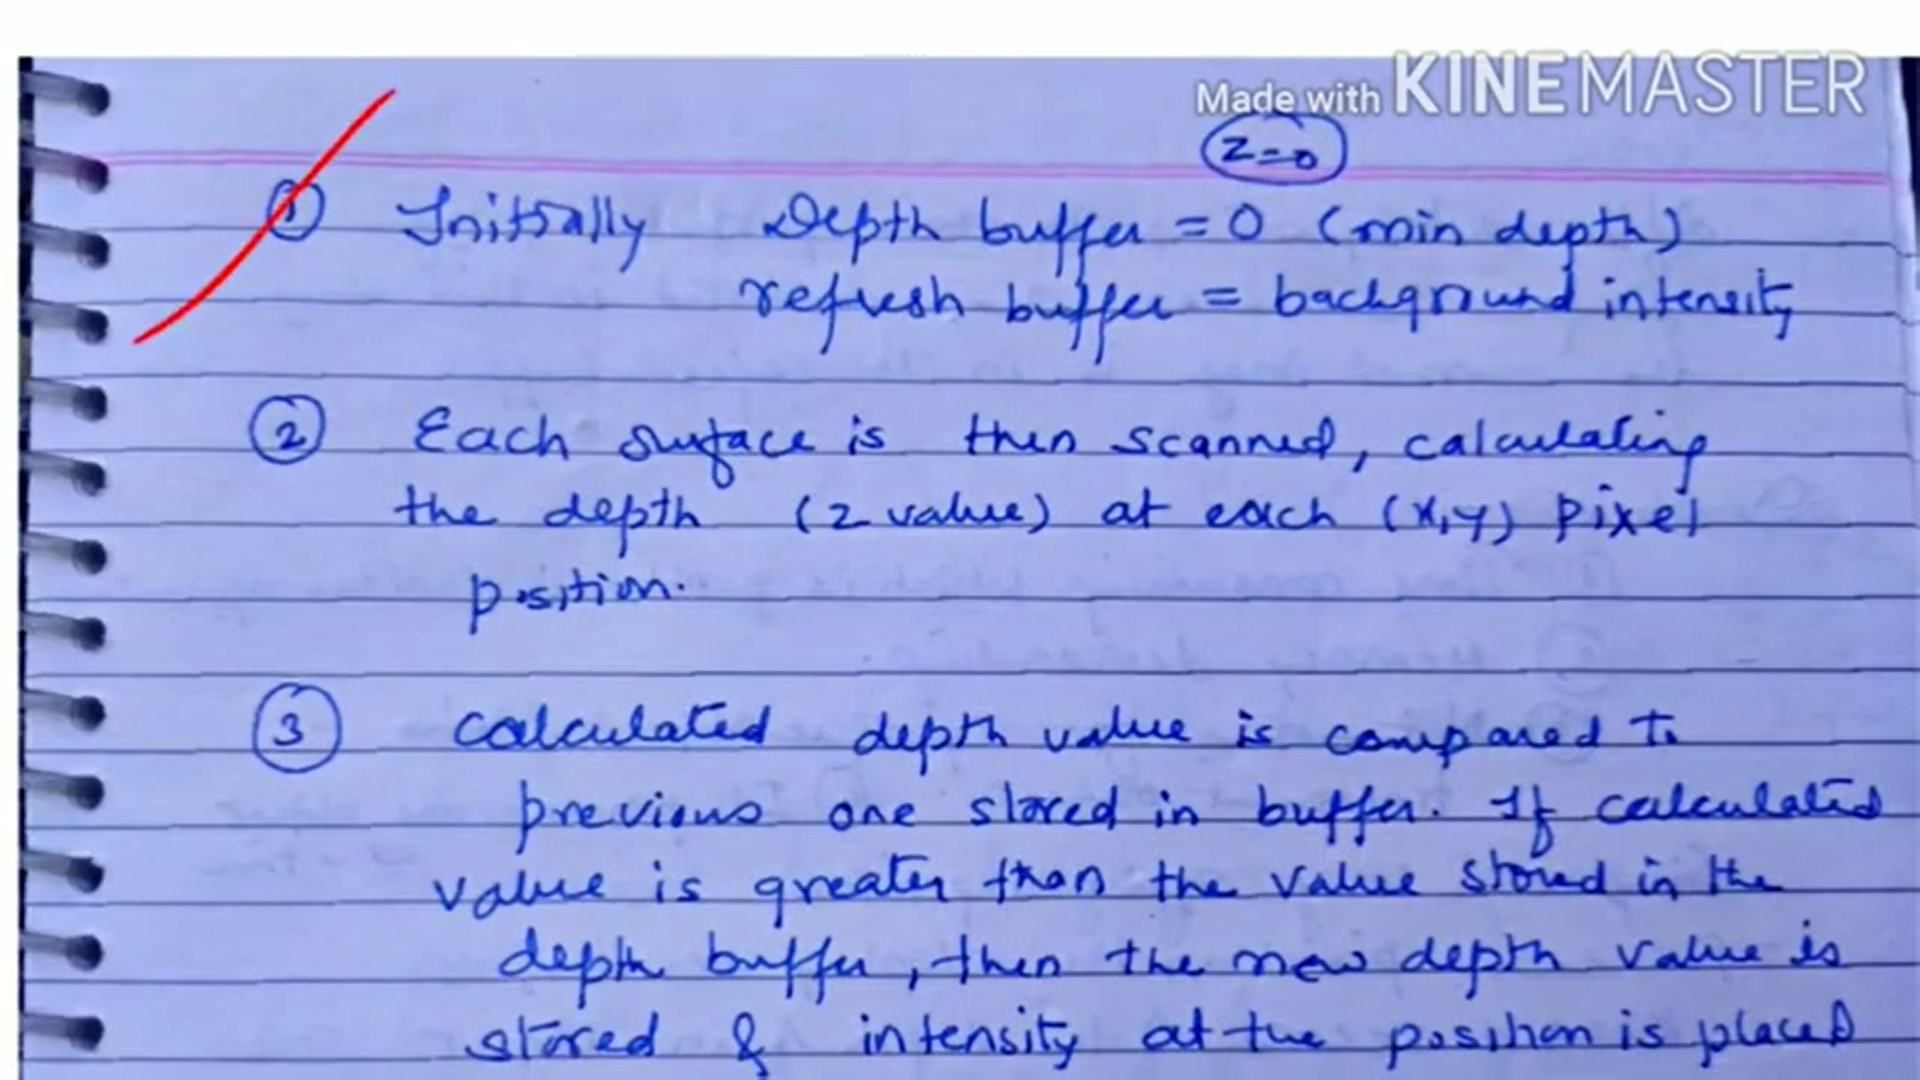 Made with KINEMASTER
z=0
① Initially Depth buffer = 0 (min depth)
refresh buffer = background intensity
② Each surface is then scanned, calculating
the depth (z value) at each (x,y) pixel
position.
③ calculated depth value is compared to
previous one stored in buffer. If calculated
value is greater than the value stored in the
depth buffer, then the new depth value is
stored & intensity at the position is placed